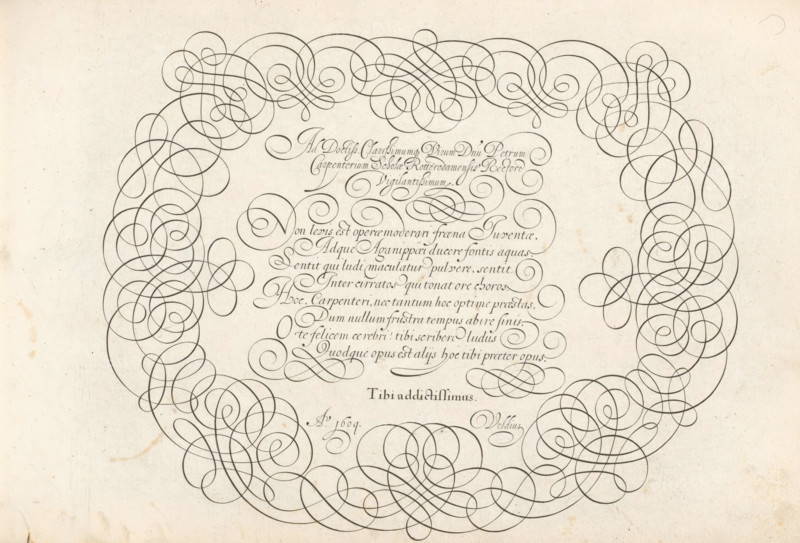 Ad Doctiss. Clarissimumq Virum Dnu Petrum
Carpenterium Scholæ Rotterodamensis Rectore
Vigilantissimum.
Non levis est operæ moderari fræna Iuventæ,
Adque Aganippæi ducere fontis aquas,
Sentit qui ludi maculatur pulvere, sentit
Inter cirratos qui tonat ore choros.
Hoc, Carpenteri, nec tantum hoc optime præstas,
Dum nullum frustra tempus abire sinis,
O te felicem cerebri! tibi scribere ludus
Quodque opus est alijs hoc tibi præter opus.
Tibi addictissimus.
Aº. 1604.
Veldius